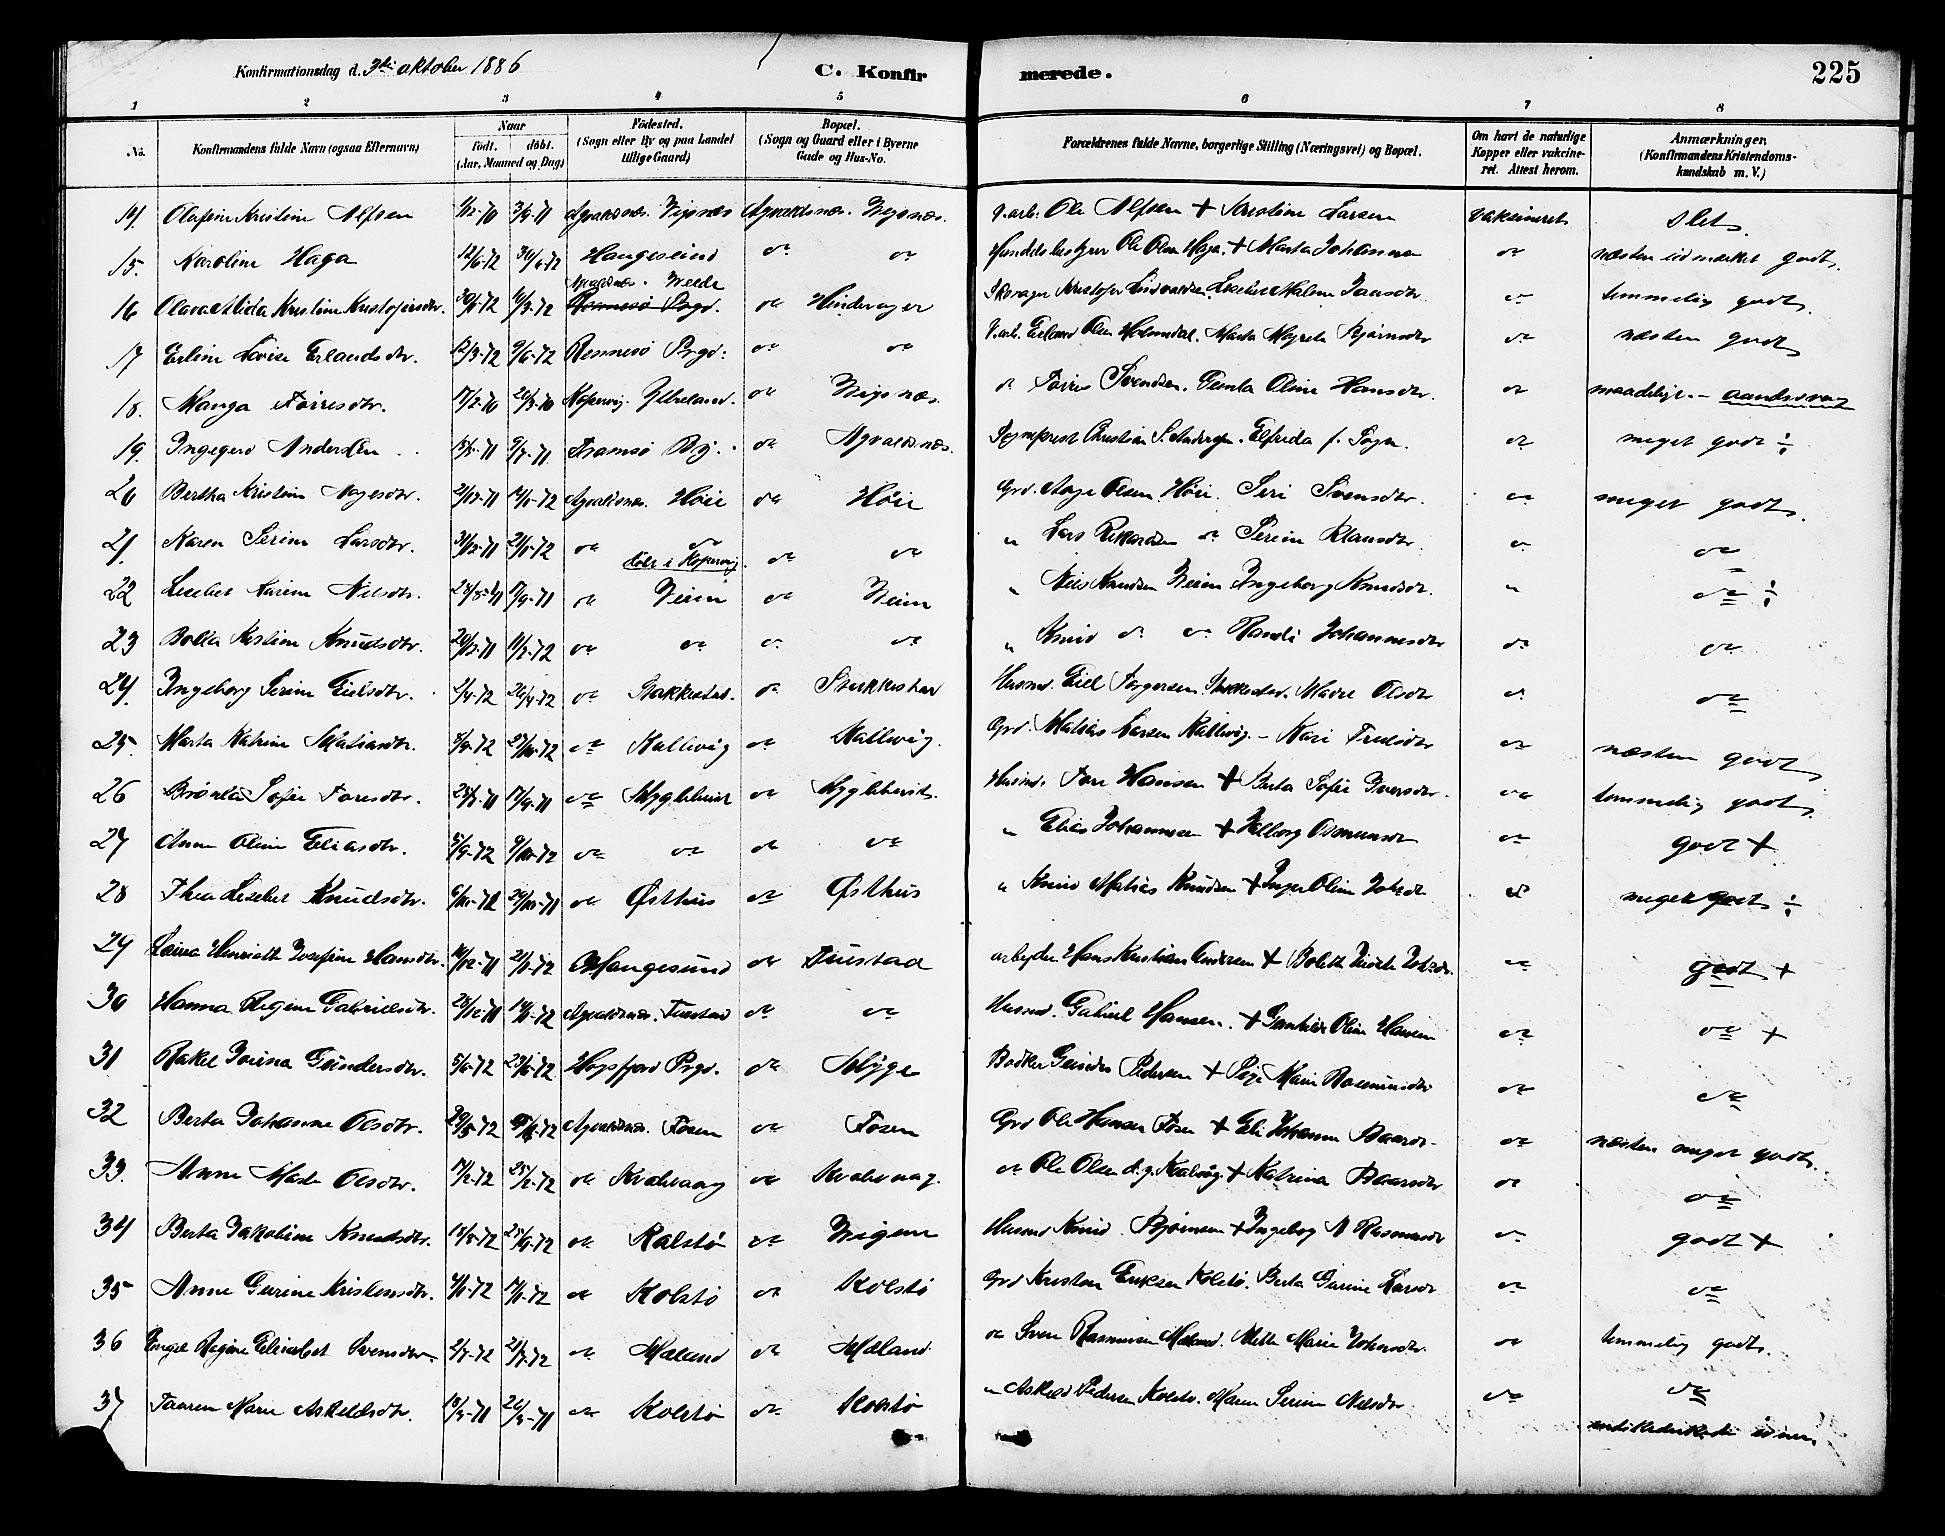 Konfirmationsdag d. 3die oktober 1886 C. Konfirmerede. 225
1 2 3 4 5 6 7 8
No. Konfirmandens fulde Navn (ogsaa Efternavn) Naar födt. döbt. (Aar, Maaned og Dag) Födested. (Sogn eller By og paa Landet tillige Gaard) Bopæl. (Sogn og Gaard eller i Byerne Gade og Hus-No. Forældrenes fulde Navne, borgerlige Stilling (Næringsvei) og Bopæl. Om havt de naturlige Kopper eller vakcineret. Attest herom. Anmærkninger. (Konfirmandens Kristendomskundskab m. V.)
14. Olafine Kristine Alfsen 1/12-70 3/9-71 Agvaldsnæs. Vigsnæs Agvaldsnæs. Vigsnæs. V.arb. Ole Alfsen + Kristine Larsen Vakcineret Slet.
15. Karoline Haga 12/6-72 30/6-72 Haugesund do do Handelsbestyrer Ole Olsen Haga. + Marta Johannes do næsten udmærket godt.
16 Olava Alida Kristine Kristofersdtr. 30/1-72 10/3-72 Agvaldsnæs. Velde do Hindvager Kristofer Lisebet Malene Jansdtr. do temmelig godt.
17 Erline Lovise Erlandsdtr. 12/3-72 9/6-72 Rennesö Prgd: do do V.arb. Erland Olsen Holmedal. Marta Magreta Bjørnsdtr do næsten godt
18. Manga Tørresdtr. 17/2-70 20/3-70 Kopervig. Ytreland. do Vigsnæs. do Tørres Svendsen. Gunla Oline Hansdtr. do maadelige. - aandssvag
19. Ingegerd Andersen 9/7-71 Tromsø By. do Agvaldsnæs. Sognprest Christian S. Andersen. Elfrida f. Sogn. do meget godt ÷
20 Bertha Kristine Aagesdtr. 2/12-71 14/1-72 Agvaldsnæs. Höie do Höie Grd. Aage Olsen Höie. Siri Svensdtr. do meget godt.
21. Karen Serine Larsdtr. 31/12-71 21/1-72 do do döbt i Kopervig. do do " Lars Rikardsen do Serine Klausdtr. do do
22 Lisebet Karine Nilsdtr. 17/9-71 do Veim do Veim " Nils Knudsen Veim Ingeborg Knudsdtr. " do ÷
23 Bolla Kistine Knudsdtr. 20/12-71 11/2-72 do do do do " Knud do do Randi Johannesdtr do do
24. Ingeborg Serine Eielsdtr. 2/4-72 26/4-72 do Stakkestad. do Stakkestad Husmd. Eiel Torgersen. Stakkestad. Madel Olsdtr do do
25 Marta Katrine Matiasdtr. 27/10-72 do Kallevig do Kallevig. Grd. Matias Larsen Kallevig - Kari Trulsdtr do næsten godt
26 Brönla Sofie Toresdtr. 17/9-71 do Myglebust do Myglebust. Husmd. Tore Hansen + Berta Sofie Iversdtr. do temmelig godt.
27 Anne Oline Eliasdtr. 5/9-72 9/10-72 do do do do " Elias Johannesen + Valborg Osmunsdr do godt +
28 Thea Lisebet Knudsdtr. 6/10-71 29/10-71 do Østhus do Østhus " Knud Matias Knudsen + Inger Oline Johsdr do meget godt ÷
29 Laura Henriette Josefine Hansdtr. 10/12-71 21/1-72 Haugesund do Tuestad arbejder Hans Kristian Andersen + Bolette do godt +
30 Hanna Regine Gabrielsdtr. 28/12-71 14/1-72 Agvaldsnæs. Tuestad do do Husmd. Gabriel Hansen. + Gunhilde Oline Hansen do do +
31 Rakel Jorina Gundersdtr. 5/6-72 23/6-72 Høgsfjord Prgd. do Myge Bødker Gunder Pedersen + Marie Rasmusdtr do do
32 Berta Johanne Olsdtr. Agvaldsnæs. Fosen do Fosen Grd Ole Hansen Fosen + Eli Johanne Baardr do næsten meget godt.
33. Anne Marte Olsdtr. 17/2-72 25/2-72 do Kvalevaag do Kvalevaag. do Ole Olsen d.y. Kvalvåg. + Katrina Baardsdtr do do
34 Berta Jakobine Knudsdtr. do Kalstö do Vigene Husmd Knud Bjørnsen + Ingeborg N Rasmusdr do godt +
35 Anne Gurine Kristensdtr. do Kolstö do Kolstö Grd Kristen Eriksen Kolstö. Berta Gurine Larsdr do do
36 Engel Regine Elisabet Svensdtr. 2/7-72 21/7-72 do Mæland do Mæland do Sven Rasmusen Mæland. Mette Marie Johansdtr. do temmelig godt.
37 Taaren Marie Askeldsdtr. do Kolstö do Kolstö " Askeld Pedersen Kolstö. Maren Serine Nilsdtr do do